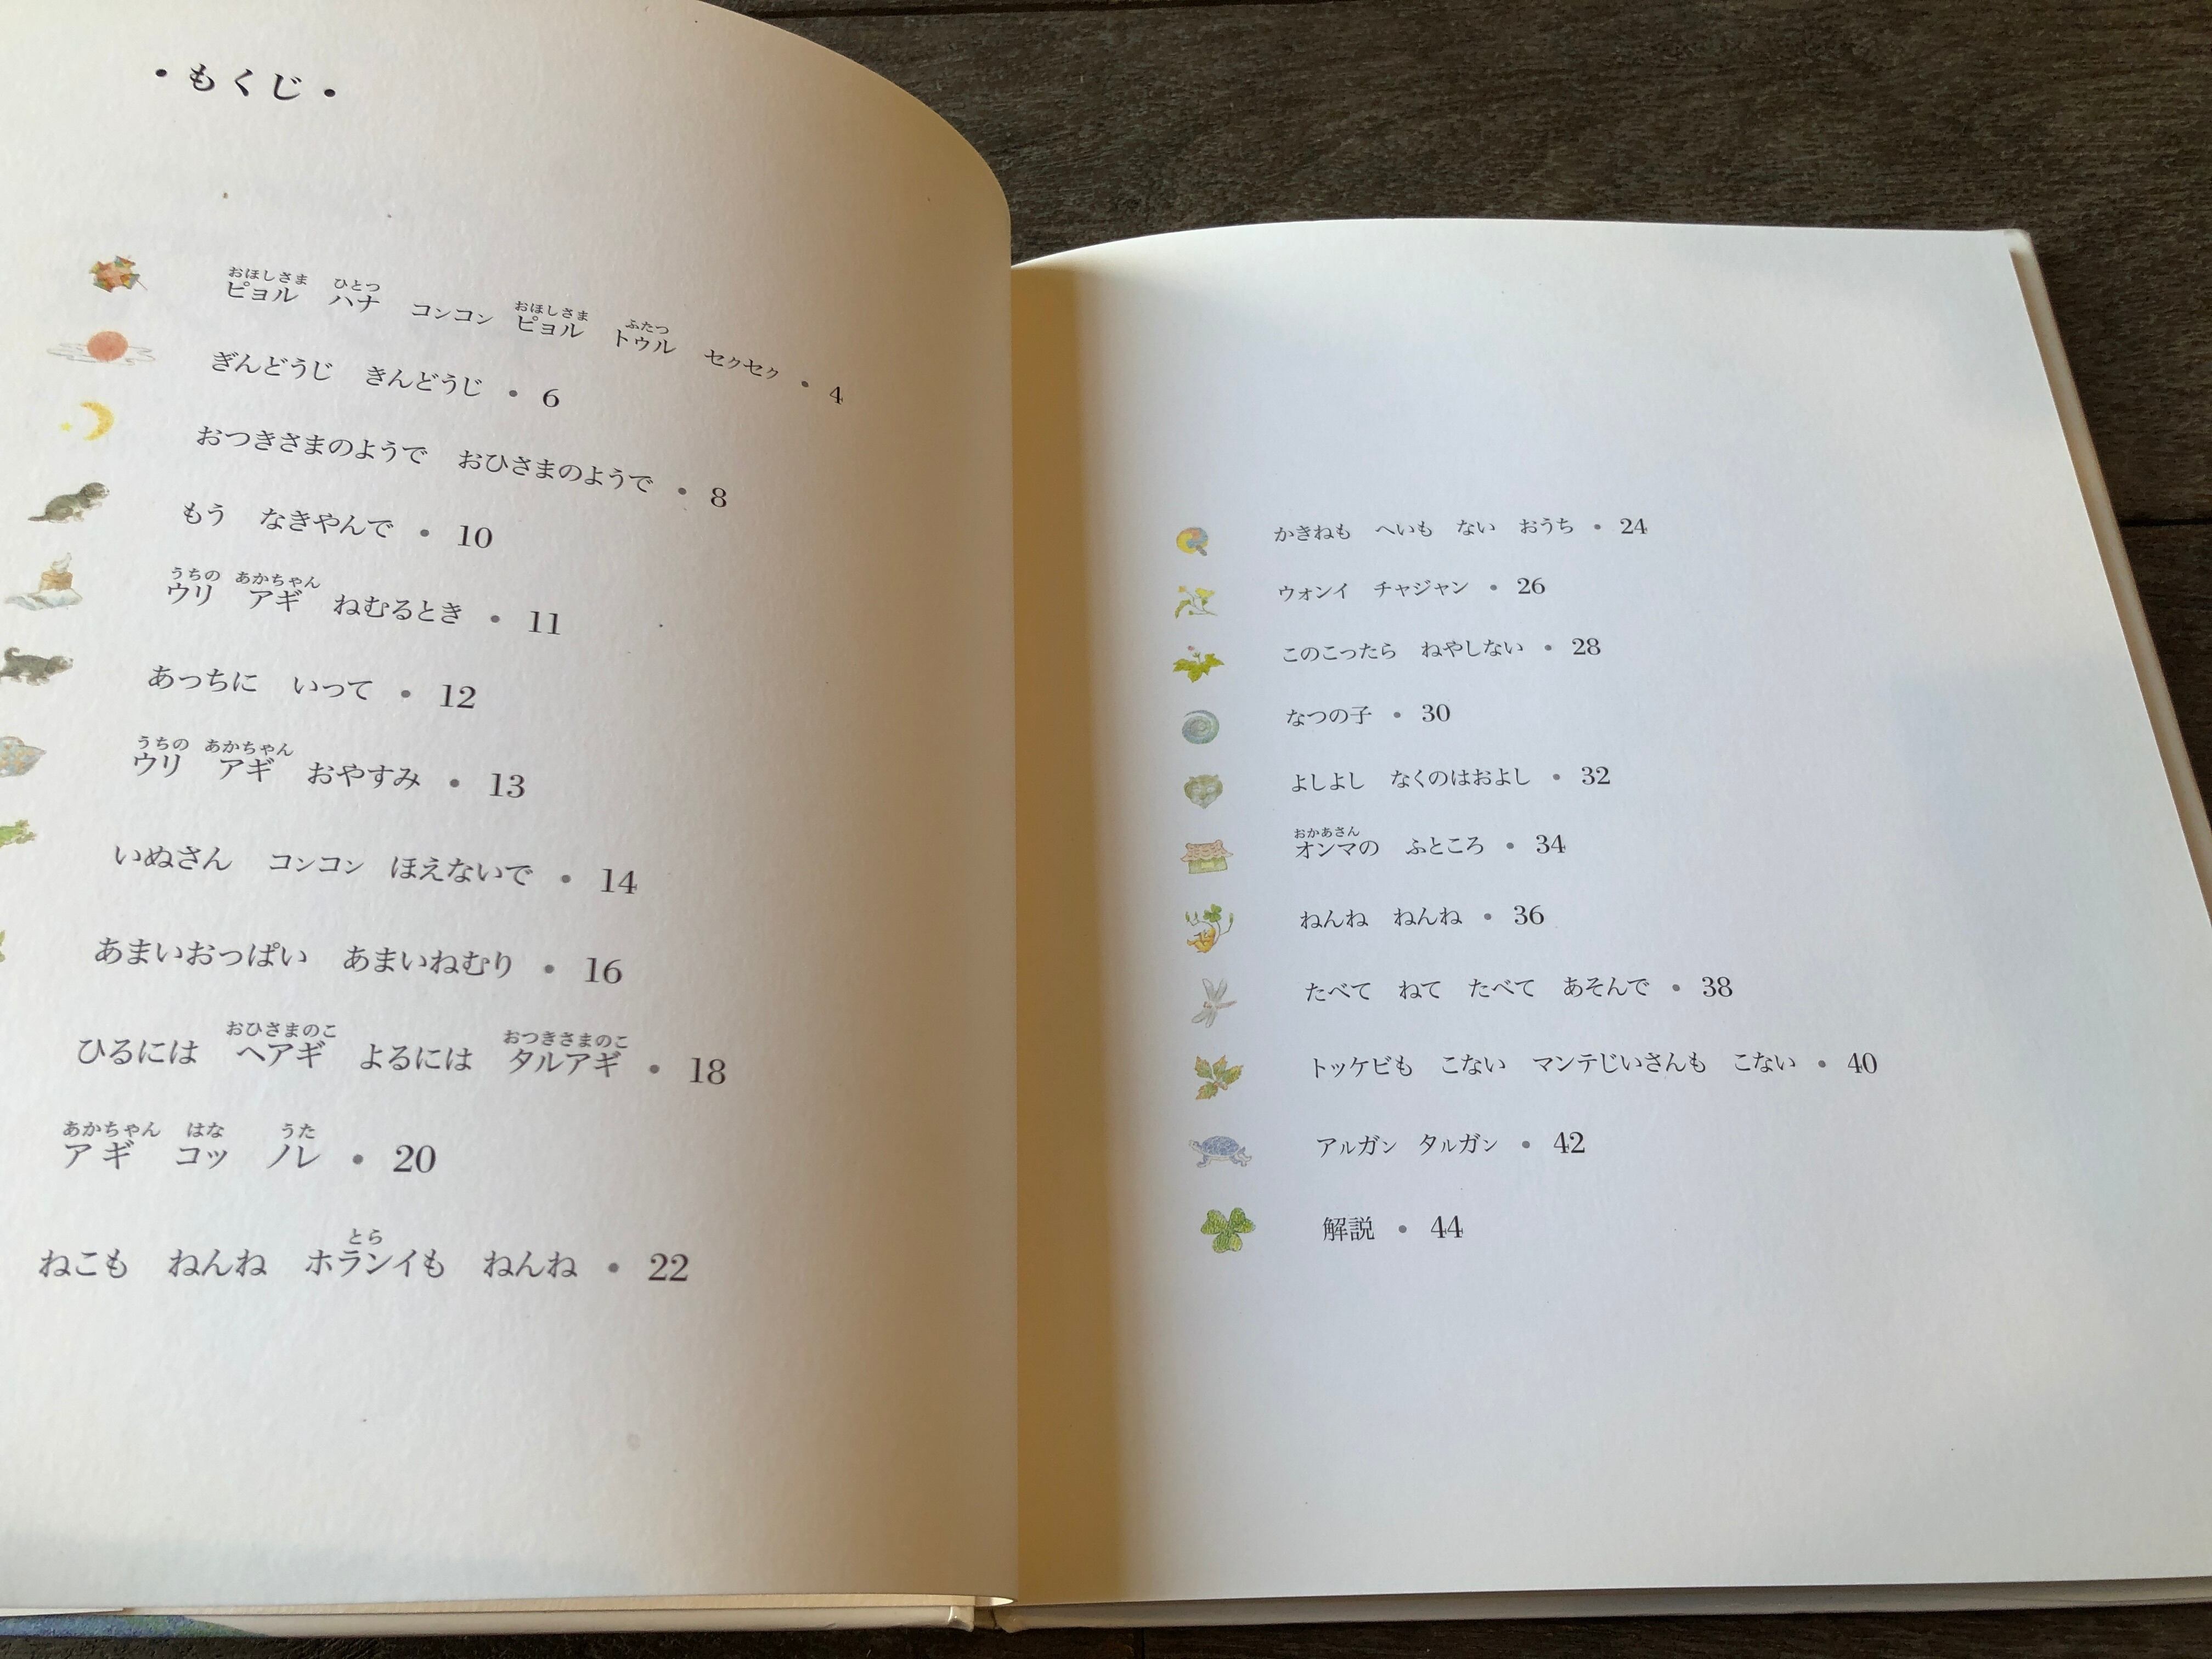 ・もくじ・
おほしさま ひとつ おほしさま ふたつ
ピョル ハナ コンコン ピョル トゥル セクセク・4
ぎんどうじ きんどうじ・6
おつきさまのようで おひさまのようで・8
もう なきやんで・10
うちの あかちゃん
ウリ アギ ねむるとき・11
あっちに いって・12
うちの あかちゃん
ウリ アギ おやすみ・13
いぬさん コンコン ほえないで・14
あまいおっぱい あまいねむり・16
おひさまのこ おつきさまのこ
ひるには ヘアギ よるには タルアギ・18
あかちゃん はな うた
アギ コッ ノレ・20
とら
ねこも ねんね ホランイも ねんね・22
かきねも へいも ない おうち・24
ウォンイ チャジャン・26
このこったら ねやしない・28
なつの子・30
よしよし なくのはおよし・32
おかあさん
オンマの ふところ・34
ねんね ねんね・36
たべて ねて たべて あそんで・38
トッケビも こない マンテじいさんも こない・40
アルガン タルガン・42
解説・44